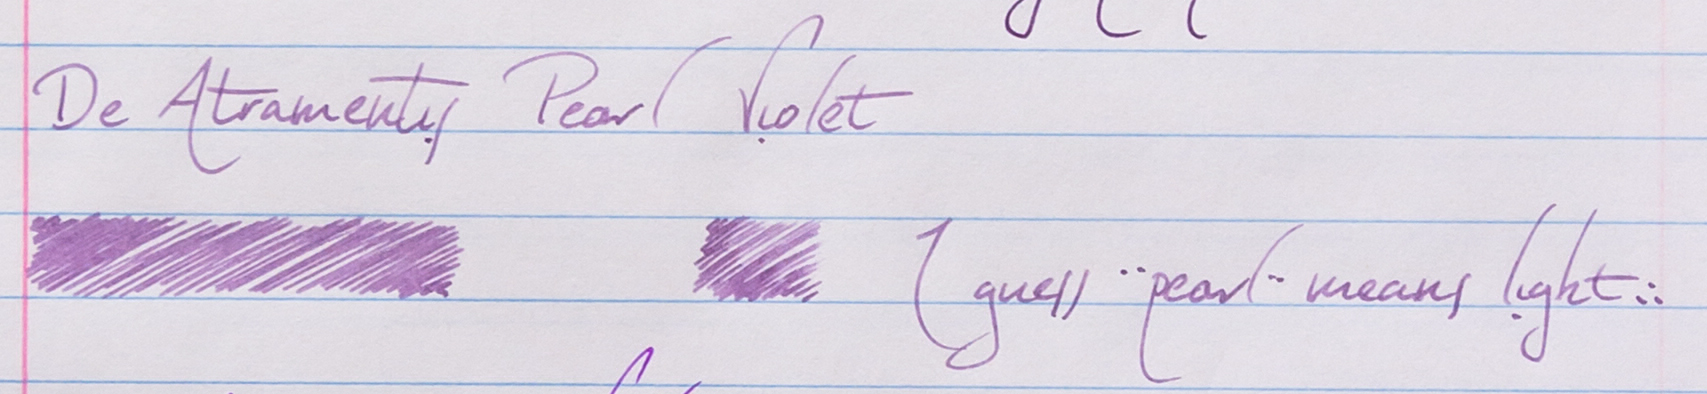 De Atramentis Pearl Violet
I guess "pearl" means light...